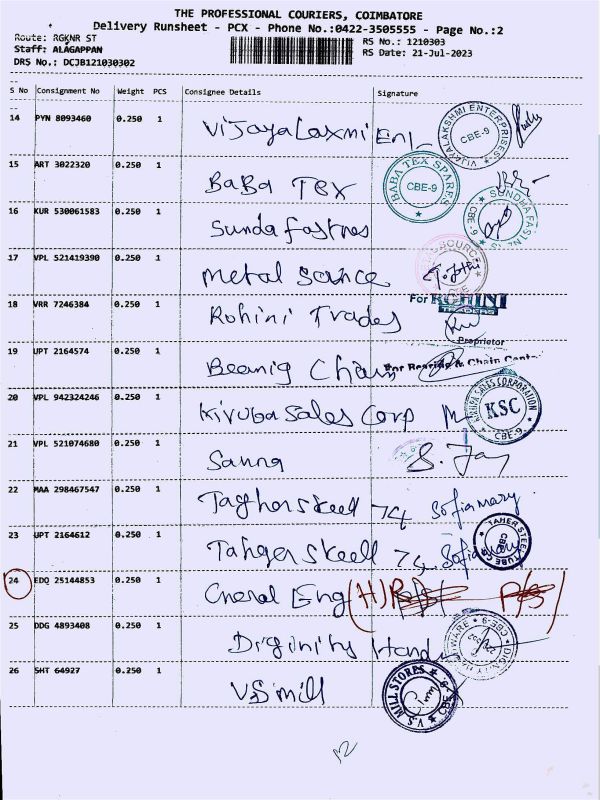 THE PROFESSIONAL COURIERS, COIMBATORE
Delivery Runsheet - PCX - Phone No.:0422-3505555 - Page No.:2
Route: RGKNR ST
RS No.: 1210303
Staff: ALAGAPPAN
RS Date: 21-Jul-2023
DRS No.: DCJB121030302
S No Consignment No Weight PCS Consignee Details Signature
14 PYN 8093460 0.250 1 Vijaya Laxmi Ent VIJAYALAKSHMI ENTERPRISES CBE-9
15 ART 3022320 0.250 1 BaBa Tex BABA TEX SPARES CBE-9
16 KUR 530061583 0.250 1 Sunda Fastnes CBE-9
17 VPL 521419390 0.250 1 Metal Source
18 VRR 7246384 0.250 1 Rohini Trades For ROHINI
Proprietor
19 UPT 2164574 0.250 1 Bearing Chain For Bearing & Chain Centre
20 VPL 942324246 0.250 1 Kiruba Sales Corp KIRUBA SALES CORPORATION KSC CBE-9
21 VPL 521074680 0.250 1 S. Jay
22 MAA 298467547 0.250 1 Sofiamary
23 UPT 2164612 0.250 1 Sofiamary TAHER STEEL TUBE CO. CBE
24 EDQ 25144853 0.250 1 Cheral Eng (H)
25 DDG 4893408 0.250 1 Diginity Hand DIGNITY HARDWARE CBE-9
26 SHT 64927 0.250 1 V.S mill V.S. MILL STORES CBE-9